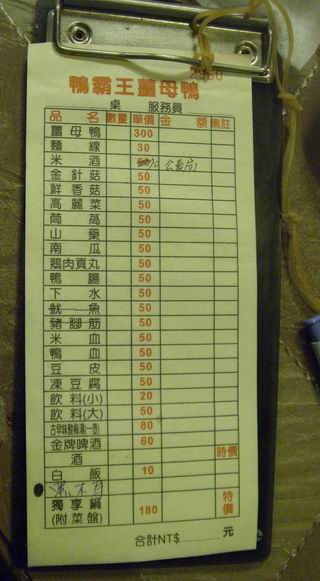 2980
鴨霸王薑母鴨
桌 服務員
品名 數量 單價 金額 備註
薑母鴨 300
麵線 30
米酒 公賣局
金針菇 50
鮮香菇 50
高麗菜 50
茼萵 50
山藥 50
南瓜 50
鵝肉貢丸 50
鴨腸 50
下水 50
魷魚 50
豬腳筋 50
米血 50
鴨血 50
豆皮 50
凍豆腐 50
飲料(小) 20
飲料(大) 50
古早味酸梅湯(一壺) 80
金牌啤酒 60
酒 時價
白飯 10
黑木耳
獨享鍋(附菜盤) 180 特價
合計NT$ 元